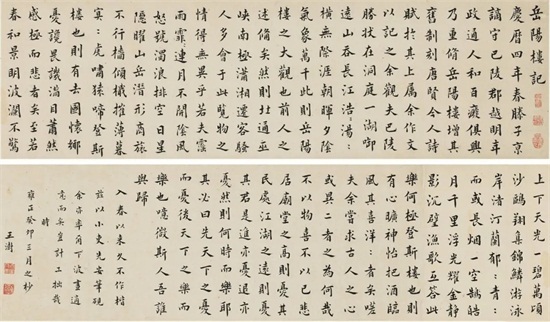 岳陽樓記
慶曆四年春滕子京
謫守巴陵郡越明年
政通人和百廢俱興
乃重脩岳陽樓增其
舊制刻唐賢今人詩
賦於其上屬余作文
以記之余觀夫巴陵
勝狀在洞庭一湖啣
遠山吞長江浩=湯=
橫無際涯朝暉夕陰
氣象萬千此則岳陽
樓之大觀也前人之
述備矣然則北通巫
峽南極瀟湘遷客騷
人多會于此覽物之
情得無異乎若夫霪
雨霏=連月不開陰風
怒號濁浪排空日星
隱曜山岳潛形商旅
不行檣傾檝摧薄暮
冥=虎嘯猿啼登斯
樓也則有去國懷鄉
憂讒畏譏滿目蕭然
感極而悲者矣至若
春和景明波瀾不驚
上下天光一碧萬頃
沙鷗翔集錦鱗游泳
岸渚汀蘭郁=青=
而或長烟一空皓
月千里浮光耀金靜
影沉璧漁歌互答此
樂何極登斯樓也則
有心曠神怡把酒臨
風其喜洋=者矣嗟
夫余嘗求古人之心
或異二者之為何哉
不以物喜不以己悲
居廟堂之高則憂其
民處江湖之遠則憂
其君是進亦憂退亦
憂然則何時而樂耶
其必曰先天下之憂
而憂後天下之樂而
樂也噫微斯人吾誰
與歸
入春以來久不作楷
茲以小史先安筆硯
毫而矣豈計工拙哉
時
雍正癸卯三月之杪
王澍